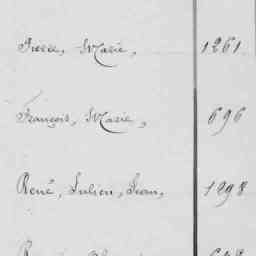 Pierre, Marie, 1261
François, Marie, 696
René, Julien, Jean, 1298